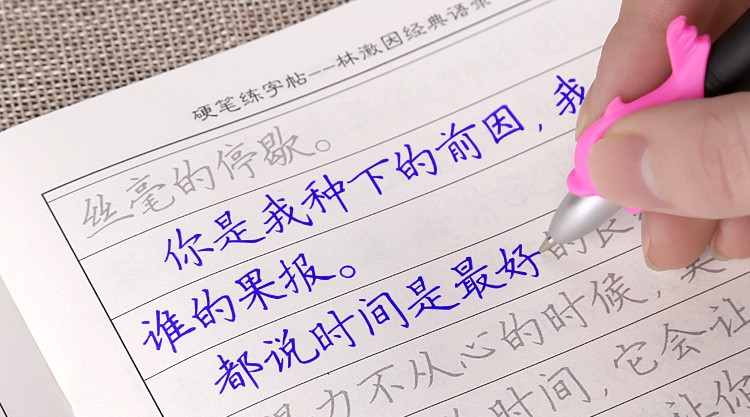 硬笔练字帖--林徽因经典语录
丝毫的停歇。
你是我种下的前因，我
谁的果报。
都说时间是最好的良
力不从心的时候，
的时间，它会让
让你